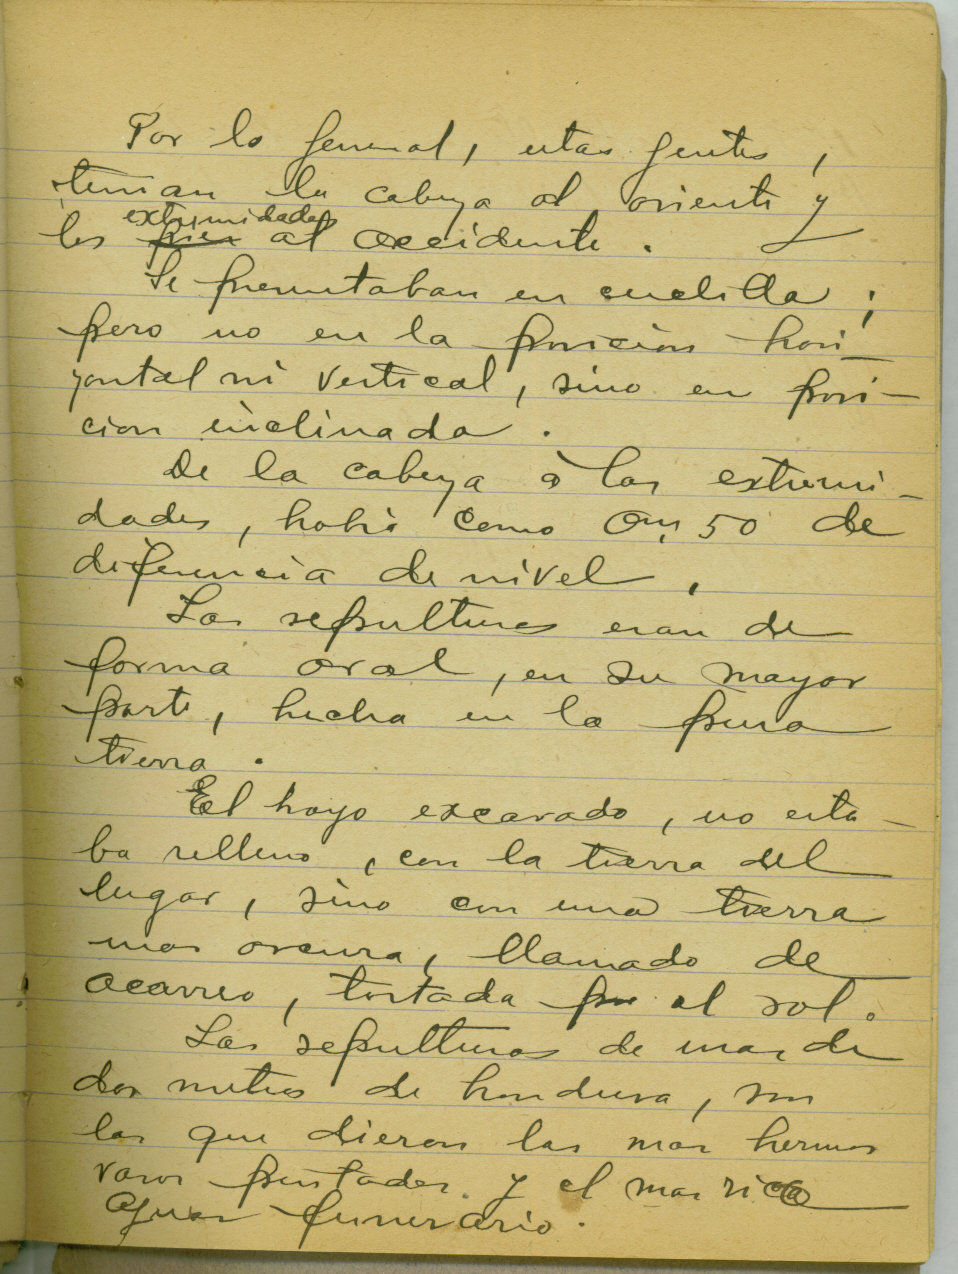 Por lo general, estas gentes,
tenian la cabeza al oriente y
extremidades
las pies al occidente.
Se presentaban en cuclilla;
pero no en la posicion hori
zontal ni vertical, sino en posi-
cion inclinada.
De la cabeza à las extremi-
dades, habia como 0m,50 de
diferencia de nivel.
Las sepulturas eran de
forma oval, en su mayor
parte, hecha en la pura
tierra.
El hoyo excavado, no esta-
ba relleno, con la tierra del
lugar, sino con una tierra
mas oscura, llamado de
acarreo, tostada por el sol.
Las sepulturas de mas de
dos metros de hondura, son
las que dieron las mas hermos
vasos pintados y el mas rico
ajuar funerario.